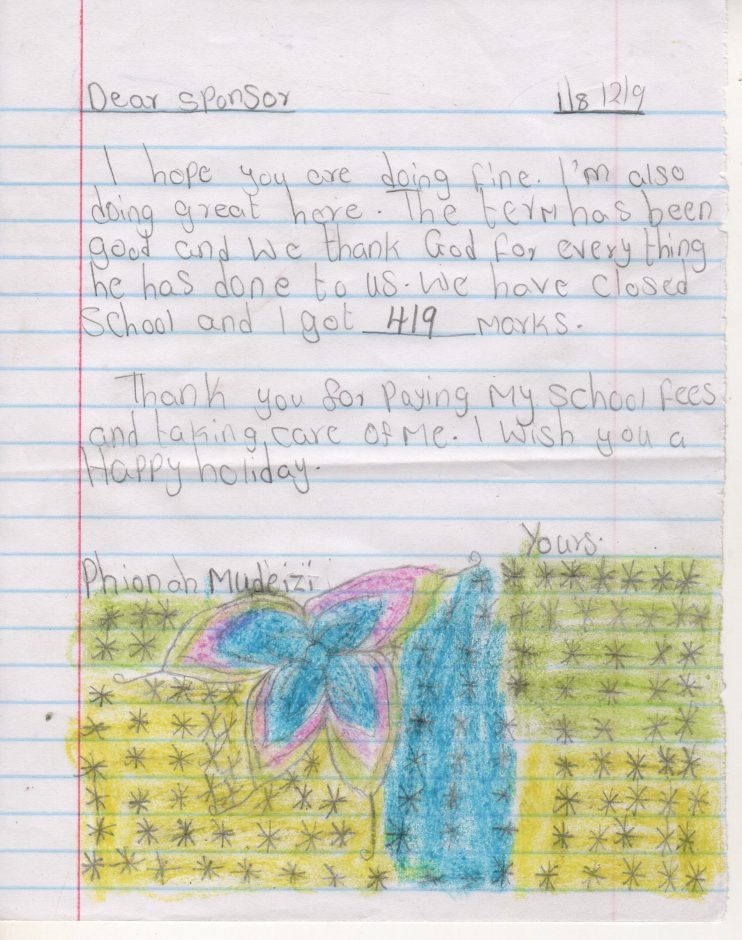 Dear sponsor
1/8 12/9
I hope you are doing fine. I'm also
doing great here. The term has been
good and we thank God for every thing
he has done to us. We have closed
school and I got 419 marks.
Thank you for paying my school fees
and taking care of me. I wish you a
Happy holiday.
Yours.
Phionah Mudeizi